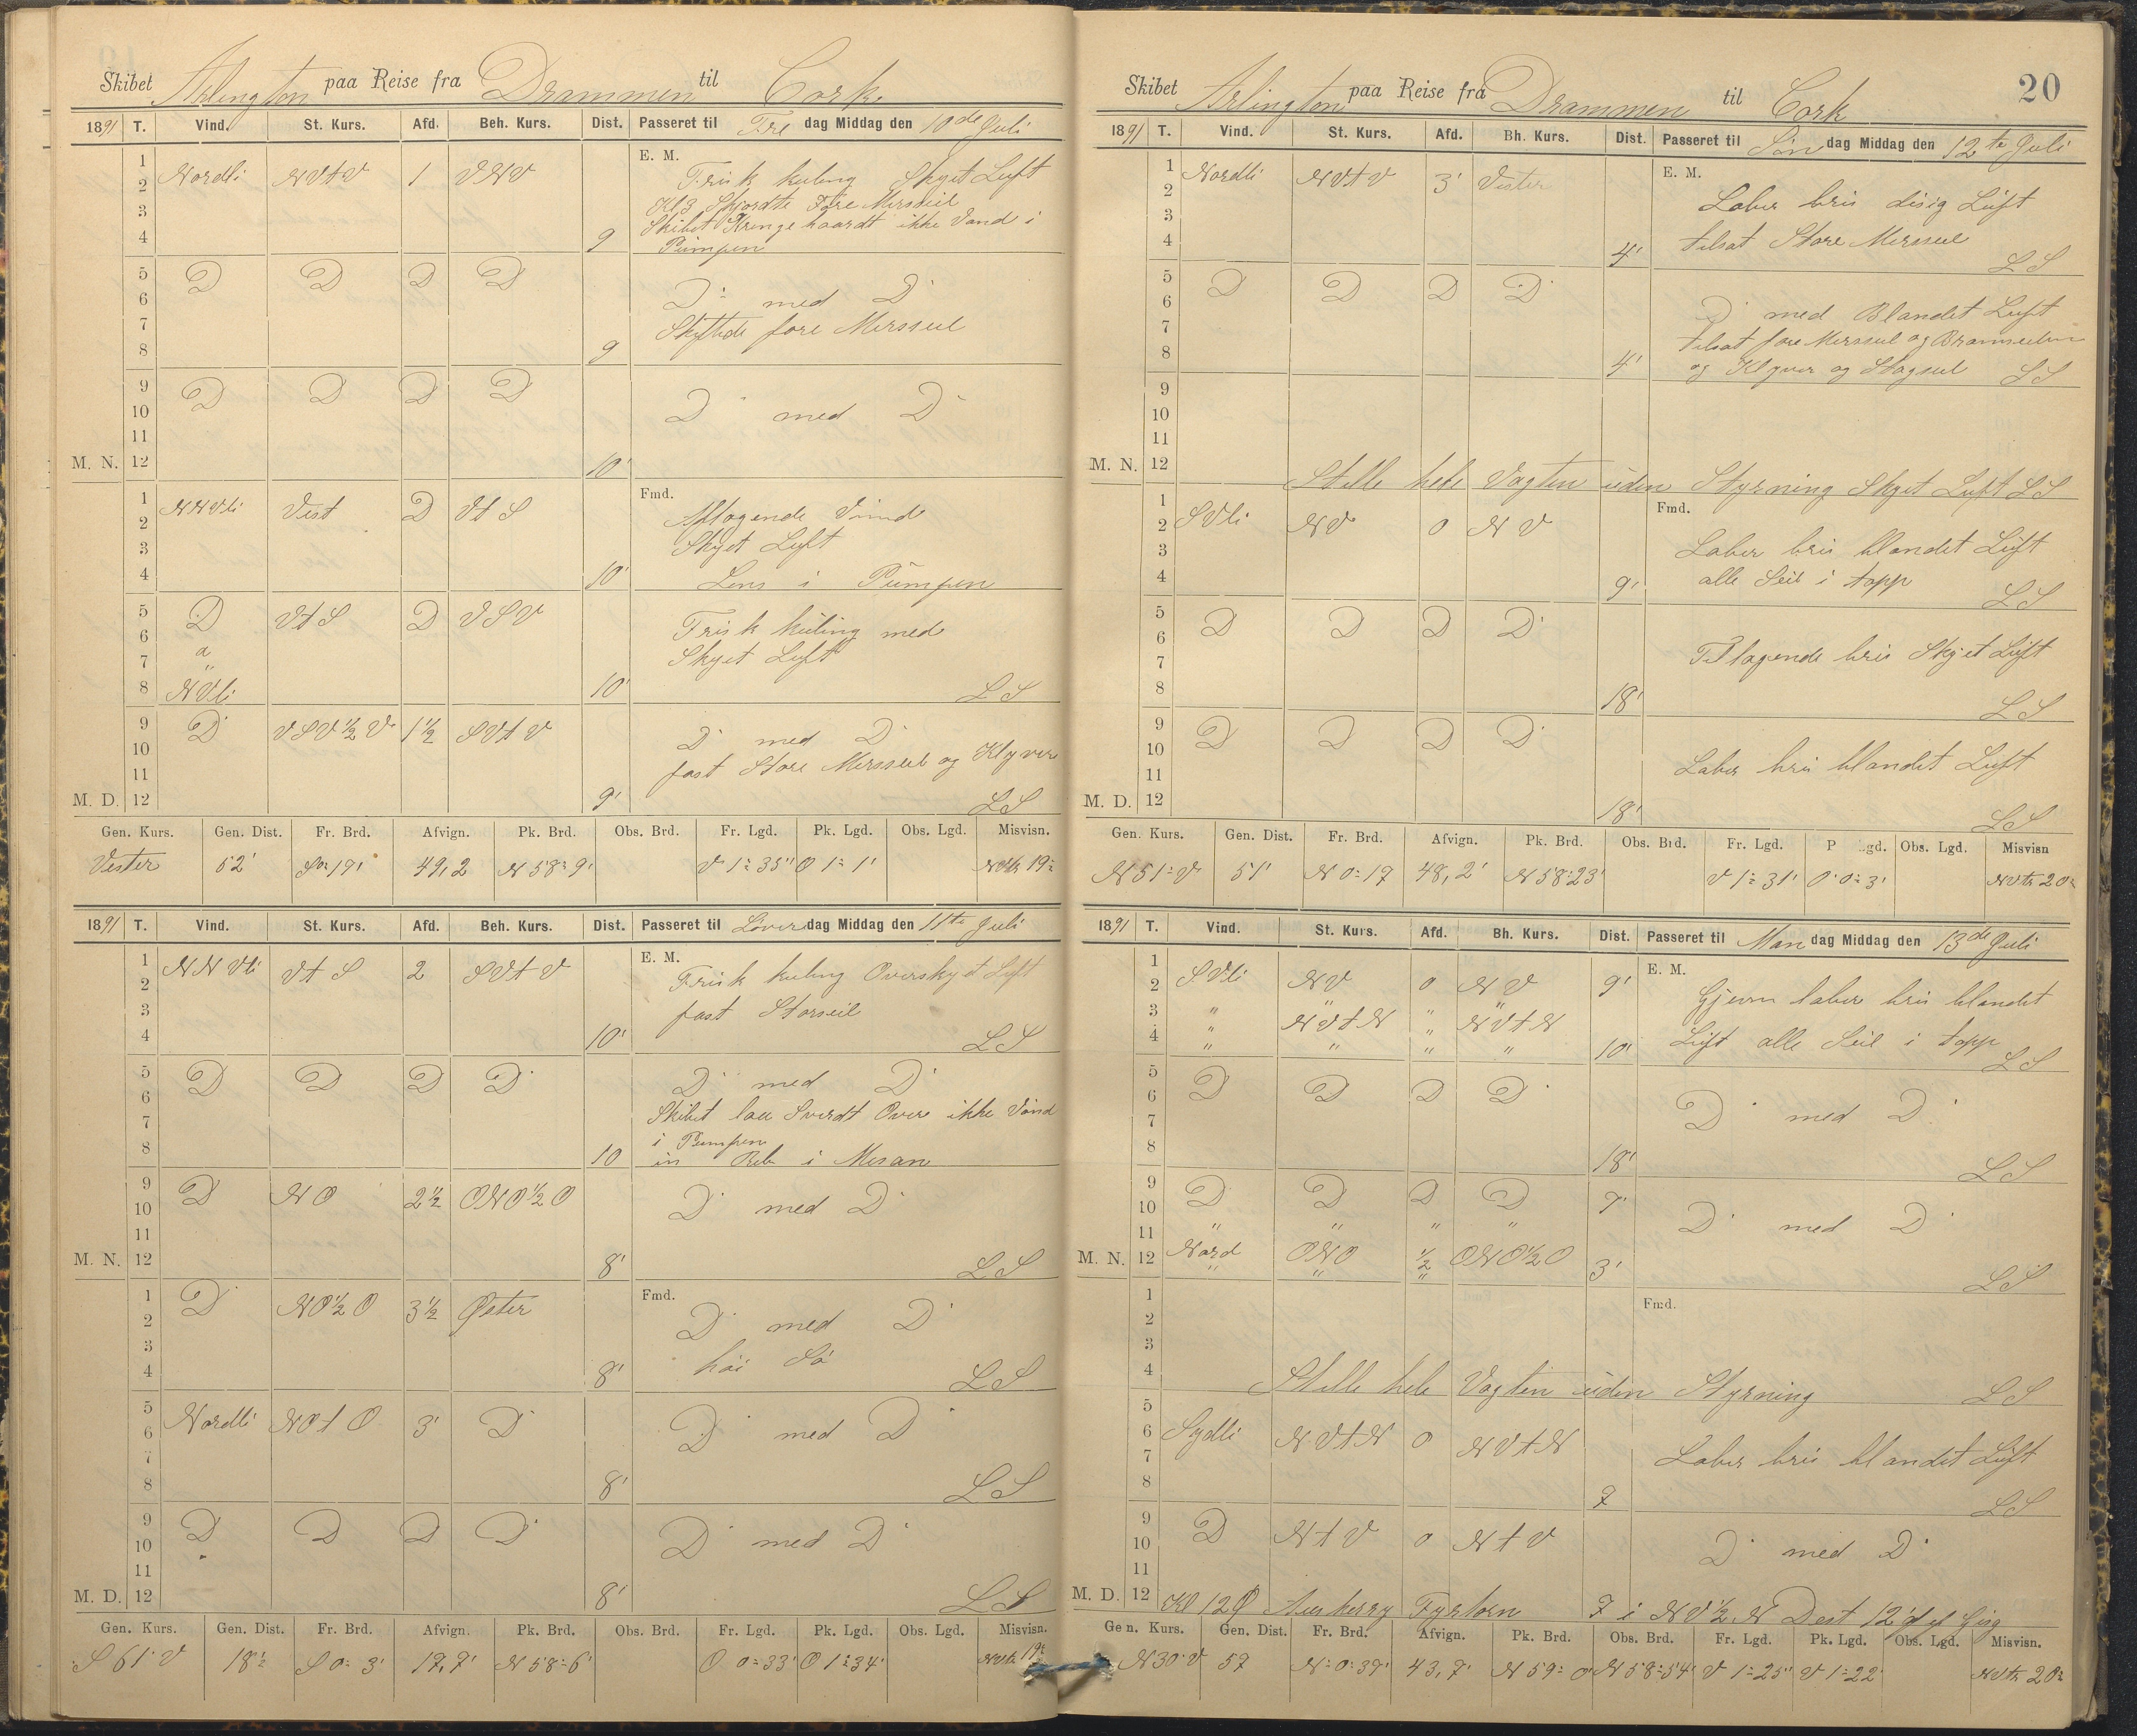 Skibet Arlington paa Reise fra Drammen til Cork
1891 T. Vind. St. Kurs. Afd. Beh. Kurs. Dist. Passeret til Fre dag Middag den 10de Juli
E. M.
1
2 Nordli NVtV 1 VNV Frisk kuling Skyet Luft
3 Kl 3 Skjordte Fore Mersseil
Skibet Krenge haardt ikke Vand i
4 9 Pumpen
5 D D D D
6 D med D
7 Skiftede fore Mersseil
8 9
9 D D D D
10 D med D
11
M. N. 12 10'
Fmd.
1 NNVli Vest D VtS Aftagende Vind
2
3 Skyet Luft
4 10' Lens i Pumpen
5 D VtS D VSV
6 " Frisk kuling med
7 " Skyet Luft
8 NVli 10' LS
9 D VSV½V 1½ SVtV
10 D med D
11 fast Store Mersseil og Klyver
M. D. 12 9' LS
Gen. Kurs. Gen. Dist. Fr. Brd. Afvign. Pk. Brd. Obs. Brd. Fr. Lgd. Pk. Lgd. Obs. Lgd. Misvisn.
Vester 52' 49,2 N 58° 9' V 1° 35' O 1° 1' 19°
1891 T. Vind. St. Kurs. Afd. Beh. Kurs. Dist. Passeret til Löver dag Middag den 11te Juli
E. M.
1 NNVli VtS 2 SVtV
2 Frisk kuling Overskyet Luft
3 fast Storseil
4 10' LS
5 D D D D
6 D med D
7 Skibet laa Sverdt Over ikke Vand
8 i Pumpen
10 in Reb i Mesan
9 D NO 2½ ONO½O
10 D med D
11
M. N. 12 8' LS
Fmd.
1 D NO½O 3½ Øster
2 D med D
3 høi Sø
4 8' LS
5
6 Nordli NOtO 3' D D med D
7
8 8' LS
9 D D D D
10 D med D
11
M. D. 12 8' LS
Gen. Kurs. Gen. Dist. Fr. Brd. Afvign. Pk. Brd. Obs. Brd. Fr. Lgd. Pk. Lgd. Obs. Lgd. Misvisn.
S 61° V 18½ S 0° 3' 17,7' N 58° 6' O 0° 33' O 1° 34' 19°
20
Skibet Arlington paa Reise fra Drammen til Cork
1891 T. Vind. St. Kurs. Afd. Bh. Kurs. Dist. Passeret til Søn dag Middag den 12te Juli
E. M.
1 Nordli NVtV 3' Vester
2 Laber bris disig Luft
3 tilsat Store Mersseil
4 4' LS
5 D D D D
6 D med Blandet Luft
7 tilsat fore Mersseil og Bramseilen
8 4' og Klyver og Stagseil LS
9
10
11
M. N. 12
Stille hele Vagten uden Styrning Skyet Luft LS
Fmd.
1
2 SVli NV 0 NV
3 Laber bris blandet Luft
4 9' alle Seil i topp LS
5
6 D D D D
7 Tiltagende bris Skyet Luft
8 18' LS
9 D D D D
10
11 Laber bris blandet Luft
M. D. 12 18' LS
Gen. Kurs. Gen. Dist. Fr. Brd. Afvign. Pk. Brd. Obs. Brd. Fr. Lgd. P gd. Obs. Lgd. Misvisn
N 51° V 51' N 0° 17 48,2' N 58° 23' V 1° 31' O 0° 3' NVtr 20°
1891 T. Vind. St. Kurs. Afd. Bh. Kurs. Dist. Passeret til Man dag Middag den 13de Juli
E. M.
1
2 SVli NV 0 NV 9' Gjevn laber bris blandet
3 " NVtN " NVtN
4 " " " " 10' Luft alle Seil i topp LS
5 D D D D
6 D med D
7
8 18' LS
9 D D D D 7'
10 D med D
11 " " " "
M. N. 12 Nord ONO ½ ONO½O 3' LS
Fmd.
1
2
3
4 Stille hele Vagten uden Styrning LS
5
6 Sydli NVtN 0 NVtN
7 Laber bris blandet Luft
8 7 LS
9 D NtV 0 NtV
10 D med D
11
M. D. 12 Kl 12 Fyrtorn 7 i NV½N Dest 12'
Gen. Kurs. Gen. Dist. Fr. Brd. Afvign. Pk. Brd. Obs. Brd. Fr. Lgd. Pk. Lgd. Obs. Lgd. Misvisn.
N 30° V 57 N 0° 37' 43,7' N 59° 0' N 58° 54' V 1° 25' V 1° 22' NVtr 20°